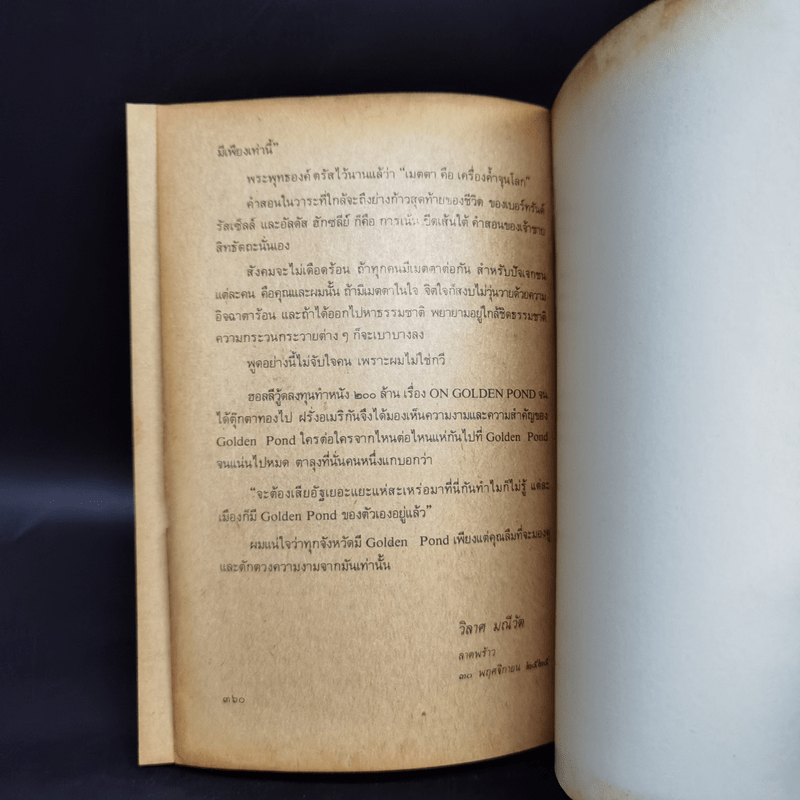 มีเพียงเท่านี้"
พระพุทธองค์ ตรัสไว้นานแล้วว่า "เมตตา คือ เครื่องค้ำจุนโลก"
คำสอนในวาระที่ใกล้จะถึงย่างก้าวสุดท้ายของชีวิต ของเบอร์ทรันด์
รัสเซ็ลล์ และอัลดัส ฮักซลีย์ ก็คือ การเน้น ขีดเส้นใต้ คำสอนของเจ้าชาย
สิทธัตถะนั่นเอง
สังคมจะไม่เดือดร้อน ถ้าทุกคนมีเมตตาต่อกัน สำหรับปัจเจกชน
แต่ละคน คือคุณและผมนั้น ถ้ามีเมตตาในใจ จิตใจก็สงบไม่วุ่นวายด้วยความ
อิจฉาตาร้อน และถ้าได้ออกไปหาธรรมชาติ พยายามอยู่ใกล้ชิดธรรมชาติ
ความกระวนกระวายต่าง ๆ ก็จะเบาบางลง
พูดอย่างนี้ไม่จับใจคน เพราะผมไม่ใช่กวี
ฮอลลีวู้ดลงทุนทำหนัง ๒๐๐ ล้าน เรื่อง ON GOLDEN POND จน
ได้ตุ๊กตาทองไป ฝรั่งอเมริกันจึงได้มองเห็นความงามและความสำคัญของ
Golden Pond ใครต่อใครจากไหนต่อไหนแห่กันไปที่ Golden Pond
จนแน่นไปหมด ตาลุงที่นั่นคนหนึ่งแกบอกว่า
"จะต้องเสียอัฐเยอะแยะแห่สะเหร่อมาที่นี่กันทำไมก็ไม่รู้ แต่ละ
เมืองก็มี Golden Pond ของตัวเองอยู่แล้ว"
ผมแน่ใจว่าทุกจังหวัดมี Golden Pond เพียงแต่คุณลืมที่จะมองดู
และตักตวงความงามจากมันเท่านั้น
วิลาศ มณีวัต
ลาดพร้าว
๓๐ พฤศจิกายน ๒๕๒๕
๓๖๐